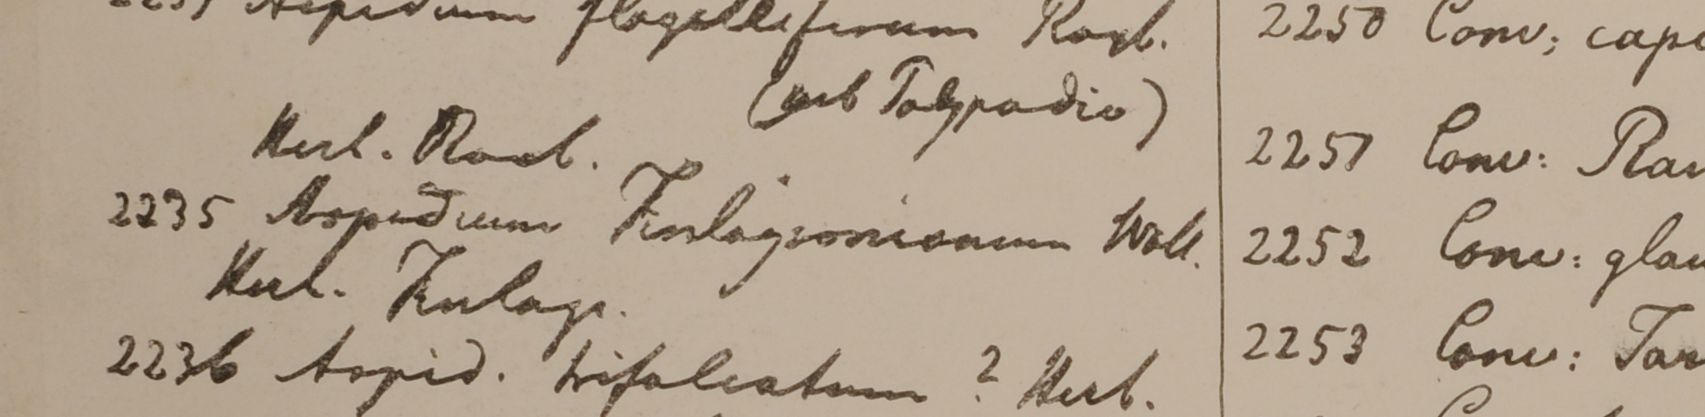 Aspidium flagelliferum Roxb.
(sub Polypodio)
Herb. Roxb.
2235 Aspidium Finlaysonianum Wall.
Herb. Finlays.
2236 Aspid. trifoliatum ? Herb.
2250 Conv; cap
2251 Conv:
2252 Conv: glau
2253 Conv: